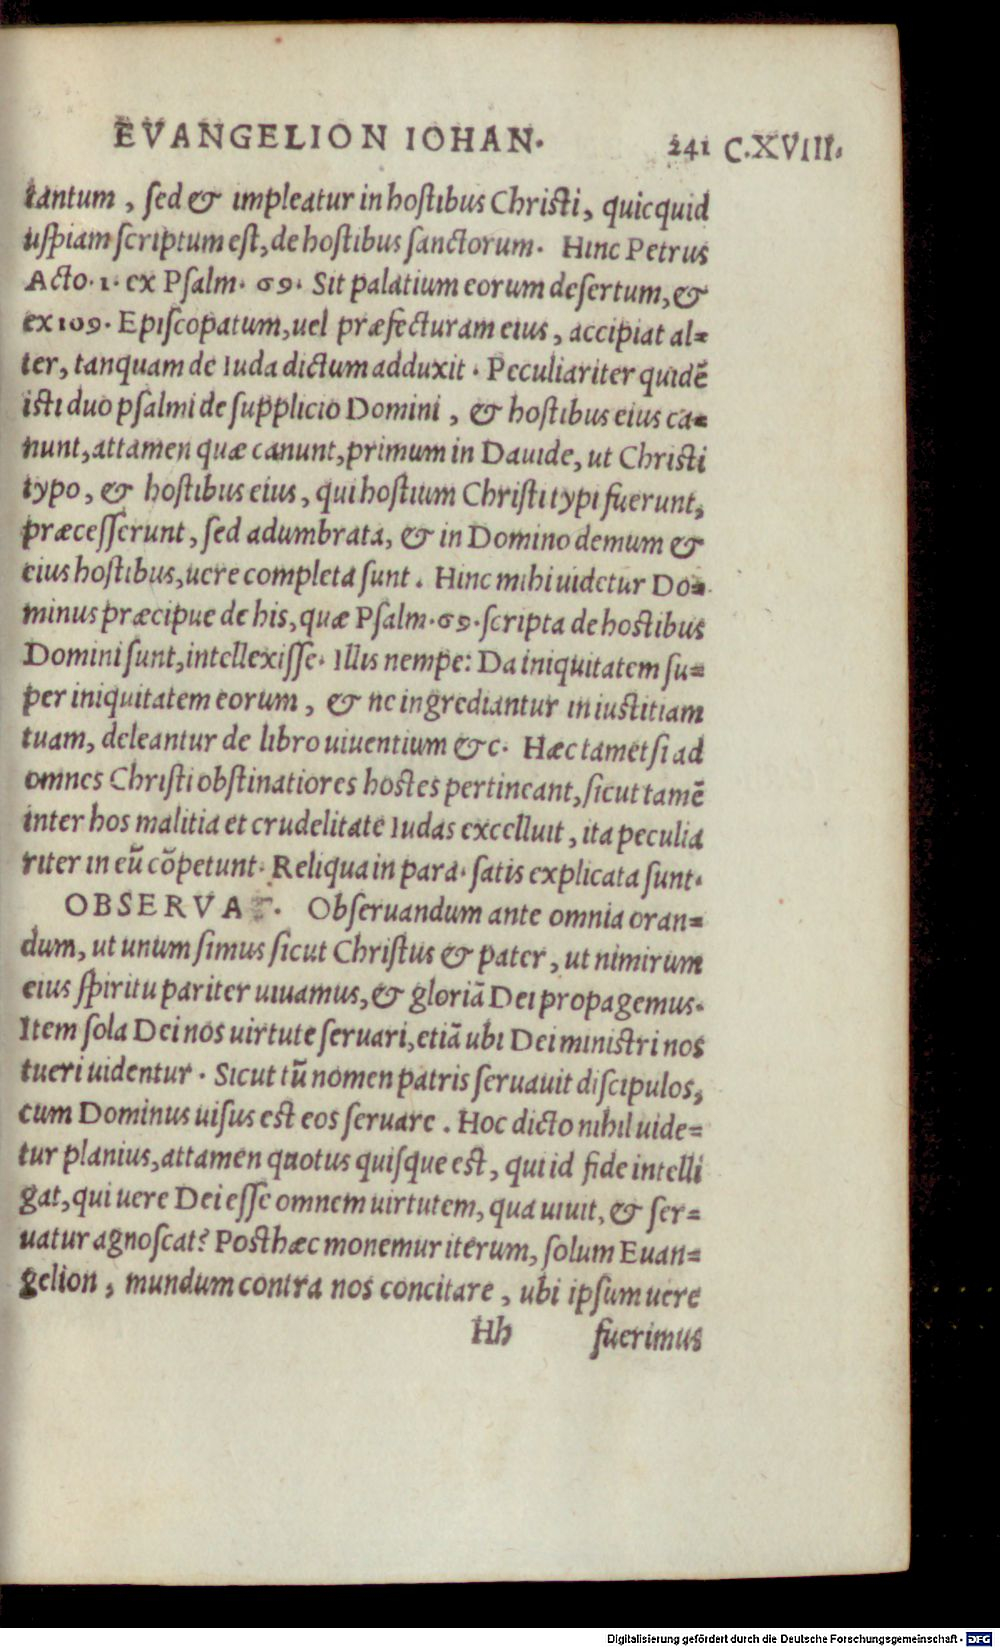 EVANGELION IOHAN. 241 C.XVIII.
tantum, sed & impleatur in hostibus Christi, quicquid
uspiam scriptum est, de hostibus sanctorum. Hinc Petrus
Acto. 1. ex Psalm. 69. Sit palatium eorum desertum, &
ex 109. Episcopatum, uel præfecturam eius, accipiat al=
ter, tanquam de Iuda dictum adduxit. Peculiariter quidē
isti duo psalmi de supplicio Domini, & hostibus eius ca=
nunt, attamen quæ canunt, primum in Dauide, ut Christi
typo, & hostibus eius, qui hostium Christi typi fuerunt,
præcesserunt, sed adumbrata, & in Domino demum &
eius hostibus, uere completa sunt. Hinc mihi uidetur Do=
minus præcipue de his, quæ Psalm. 69. scripta de hostibus
Domini sunt, intellexisse. Illis nempe: Da iniquitatem su=
per iniquitatem eorum, & ne ingrediantur in iustitiam
tuam, deleantur de libro uiuentium &c. Hæc tametsi ad
omnes Christi obstinatiores hostes pertineant, sicut tamē
inter hos malitia et crudelitate Iudas excelluit, ita peculia
riter in eū cōpetunt. Reliqua in para. satis explicata sunt.
OBSERVAT. Obseruandum ante omnia oran=
dum, ut unum simus sicut Christus & pater, ut nimirum
eius spiritu pariter uiuamus, & gloriā Dei propagemus.
Item sola Dei nos uirtute seruari, etiā ubi Dei ministri nos
tueri uidentur. Sicut tū nomen patris seruauit discipulos,
cum Dominus uisus est eos seruare. Hoc dicto nihil uide=
tur planius, attamen quotus quisque est, qui id fide intelli
gat, qui uere Dei esse omnem uirtutem, qua uiuit, & ser=
uatur agnoscat? Posthæc monemur iterum, solum Euan=
gelion, mundum contra nos concitare, ubi ipsum uere
Hh fuerimus
Digitalisierung gefördert durch die Deutsche Forschungsgemeinschaft - DFG